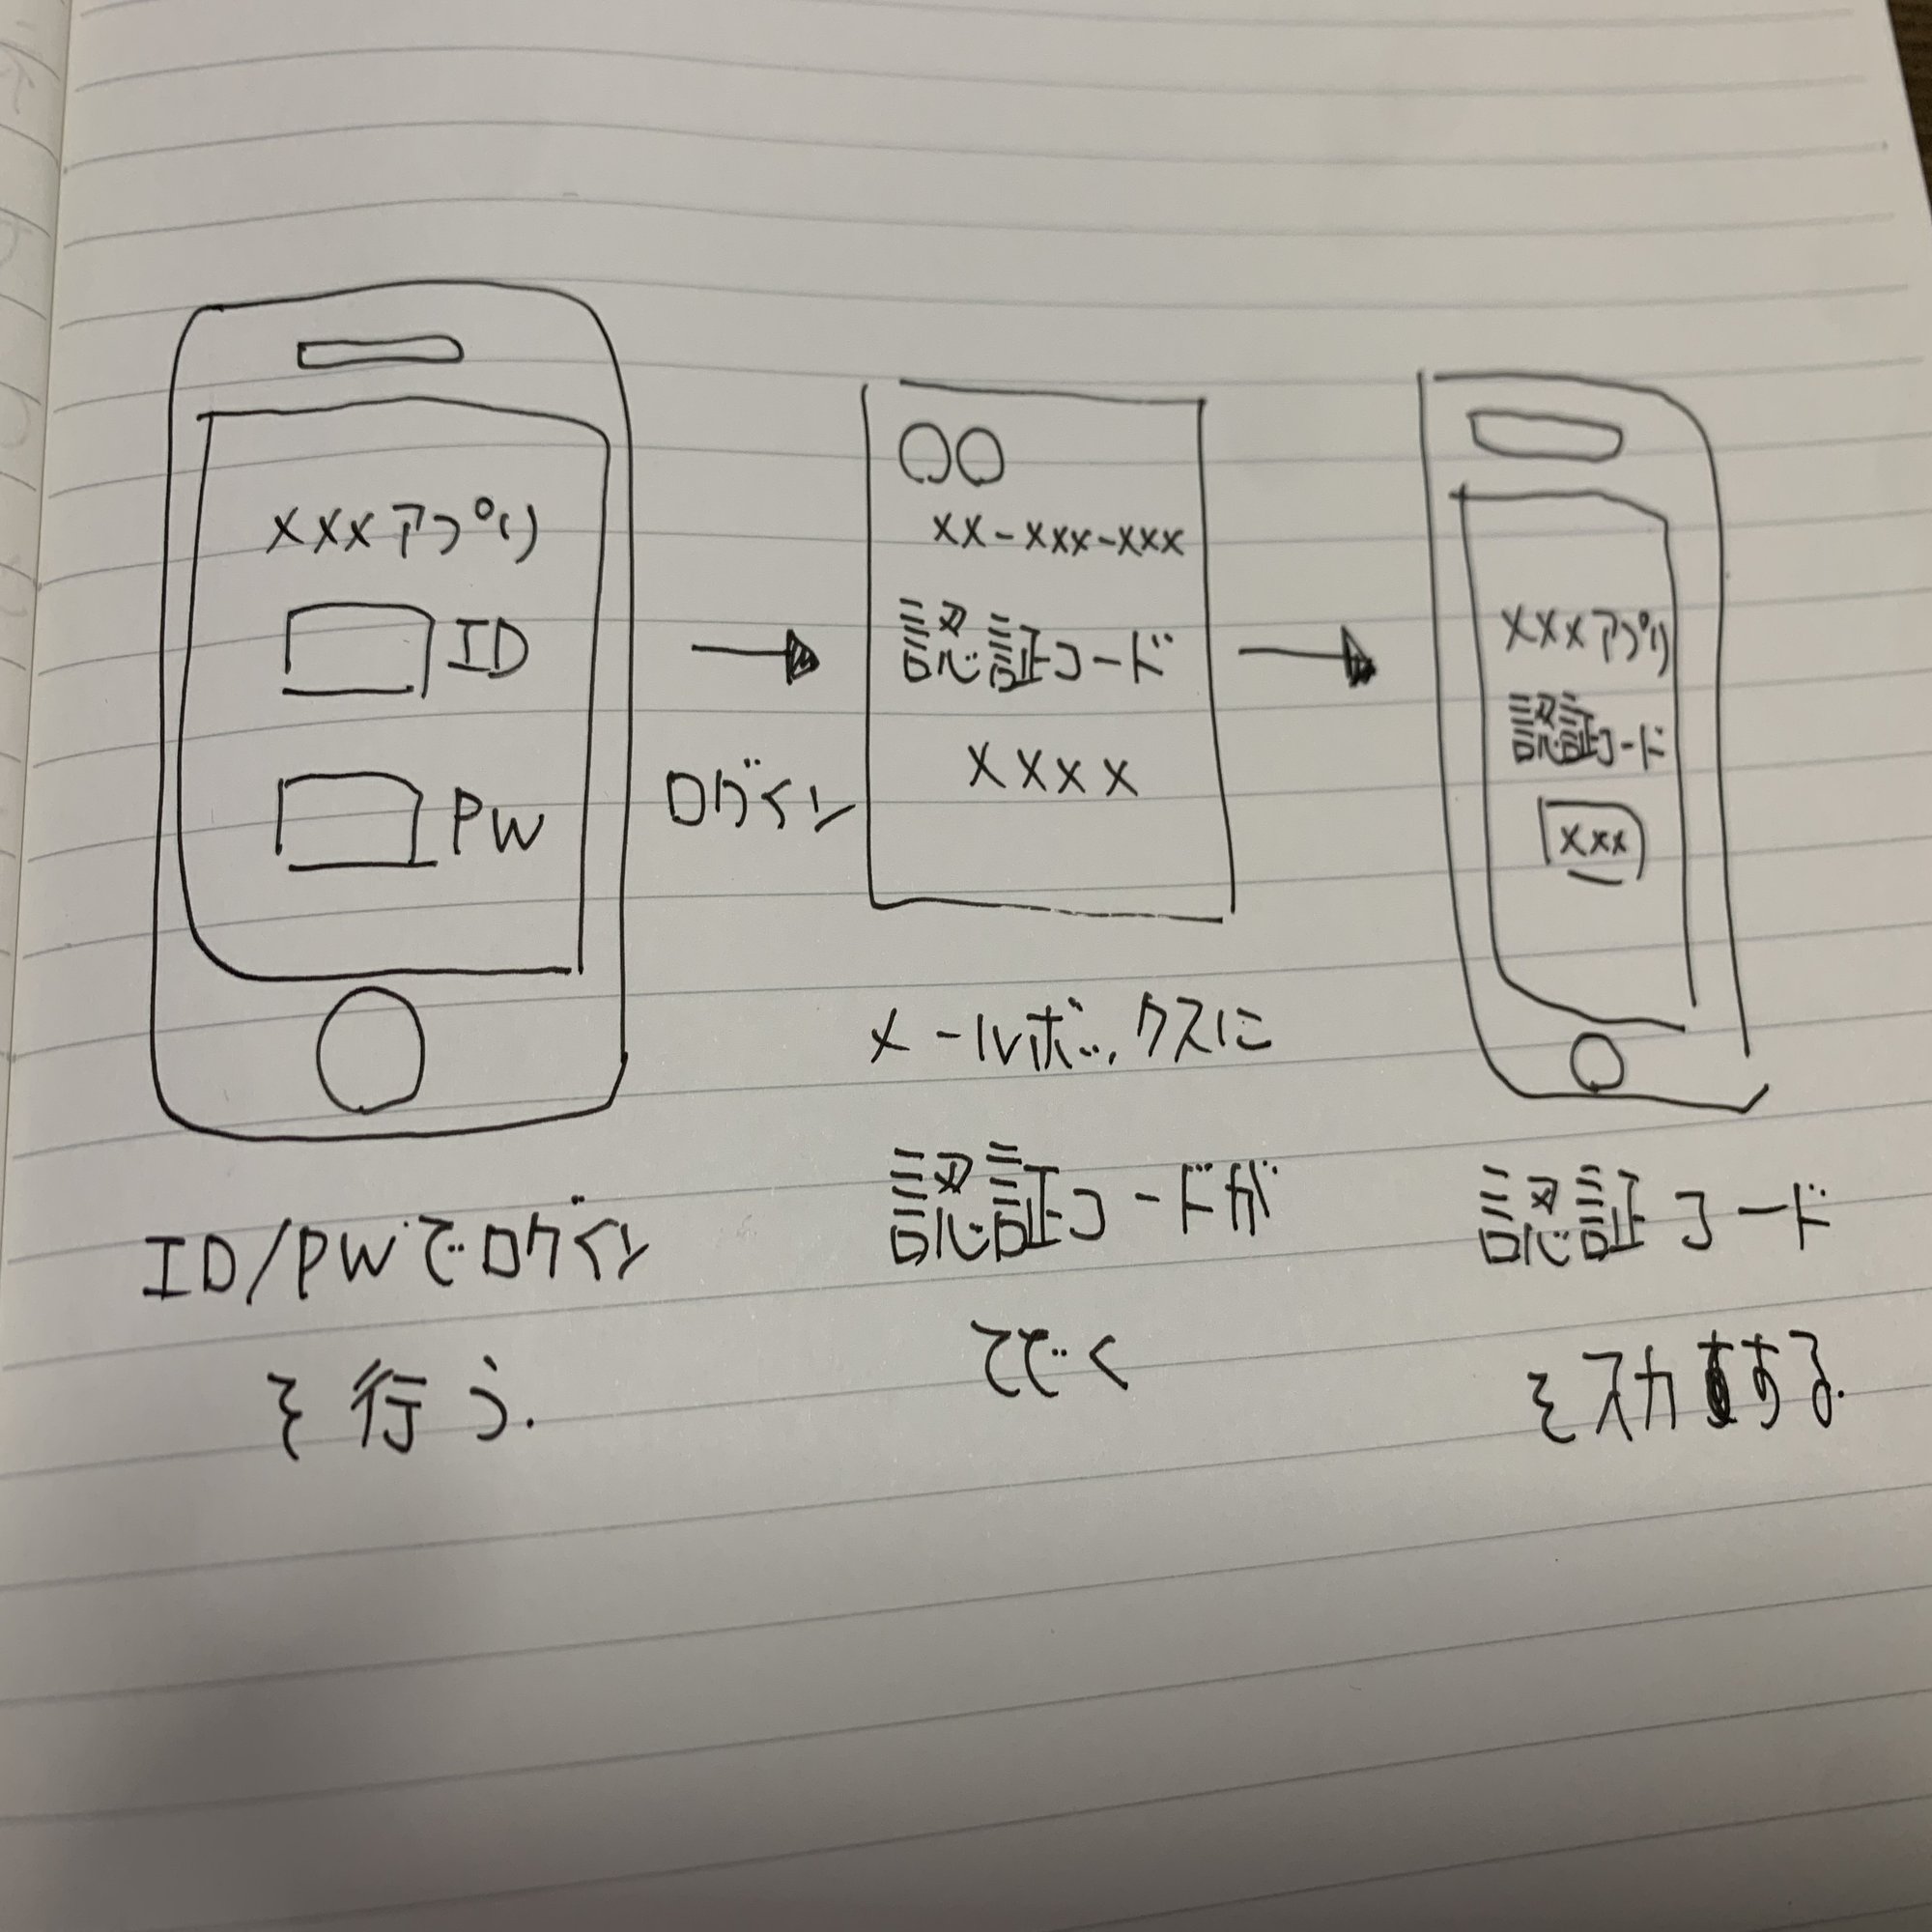 xxxアプリ
ID
PW
ログイン
○○
xx-xxx-xxx
認証コード
xxxx
xxxアプリ
認証コード
xxx
ID/PWでログイン
を行う.
メールボックスに
認証コードが
とどく
認証コード
を入力する.